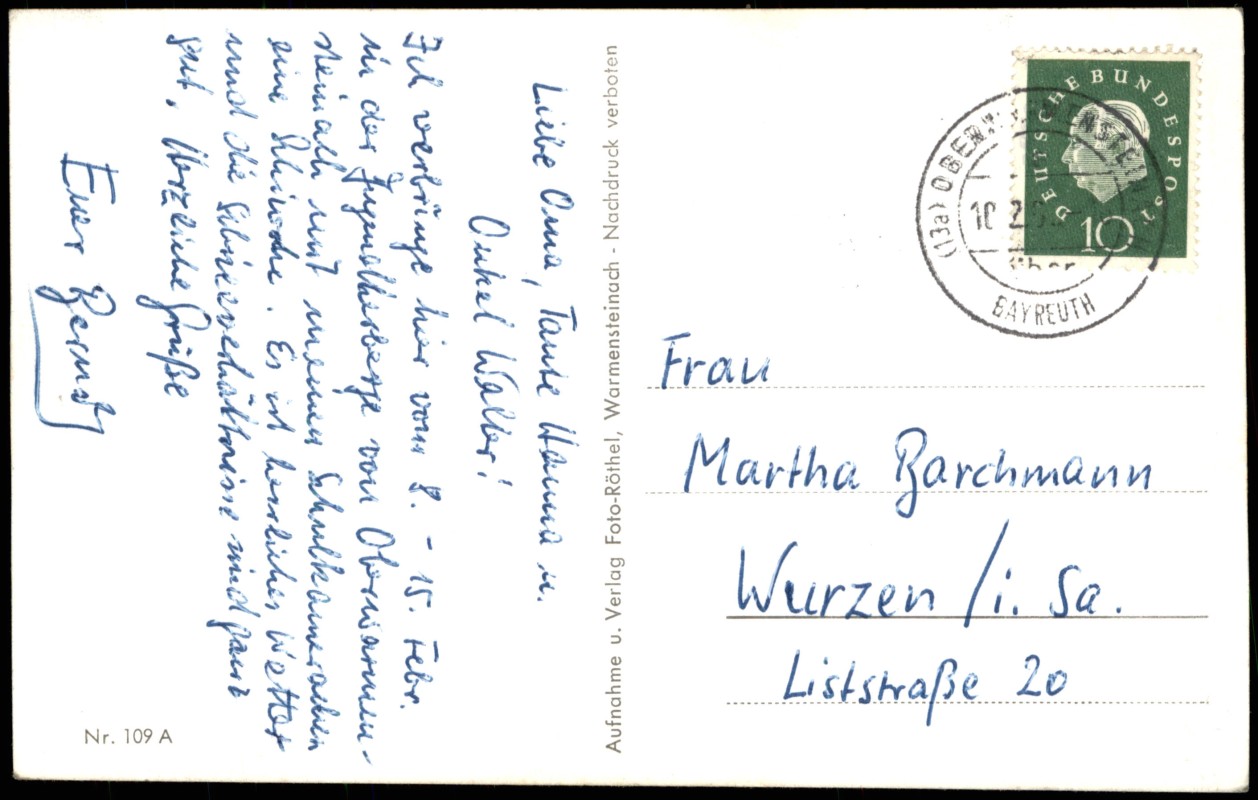 Liebe Oma, Tante Hanna u.
Onkel Walter!
Ich verbringe hier vom 8. - 15. Febr.
in der Jugendherberge von Oberwarmen-
steinach mit meinen Schulkameraden
eine Skiwoche. Es ist herrliches Wetter
und die Schneeverhältnisse sind ganz
gut. Herzliche Grüße
Euer Bernd
Nr. 109 A
Aufnahme u. Verlag Foto-Röthel, Warmensteinach - Nachdruck verboten
DEUTSCHE BUNDESPOST
10
(13a) OBERW
BAYREUTH
Frau
Martha Barchmann
Wurzen / i. Sa.
Liststraße 20